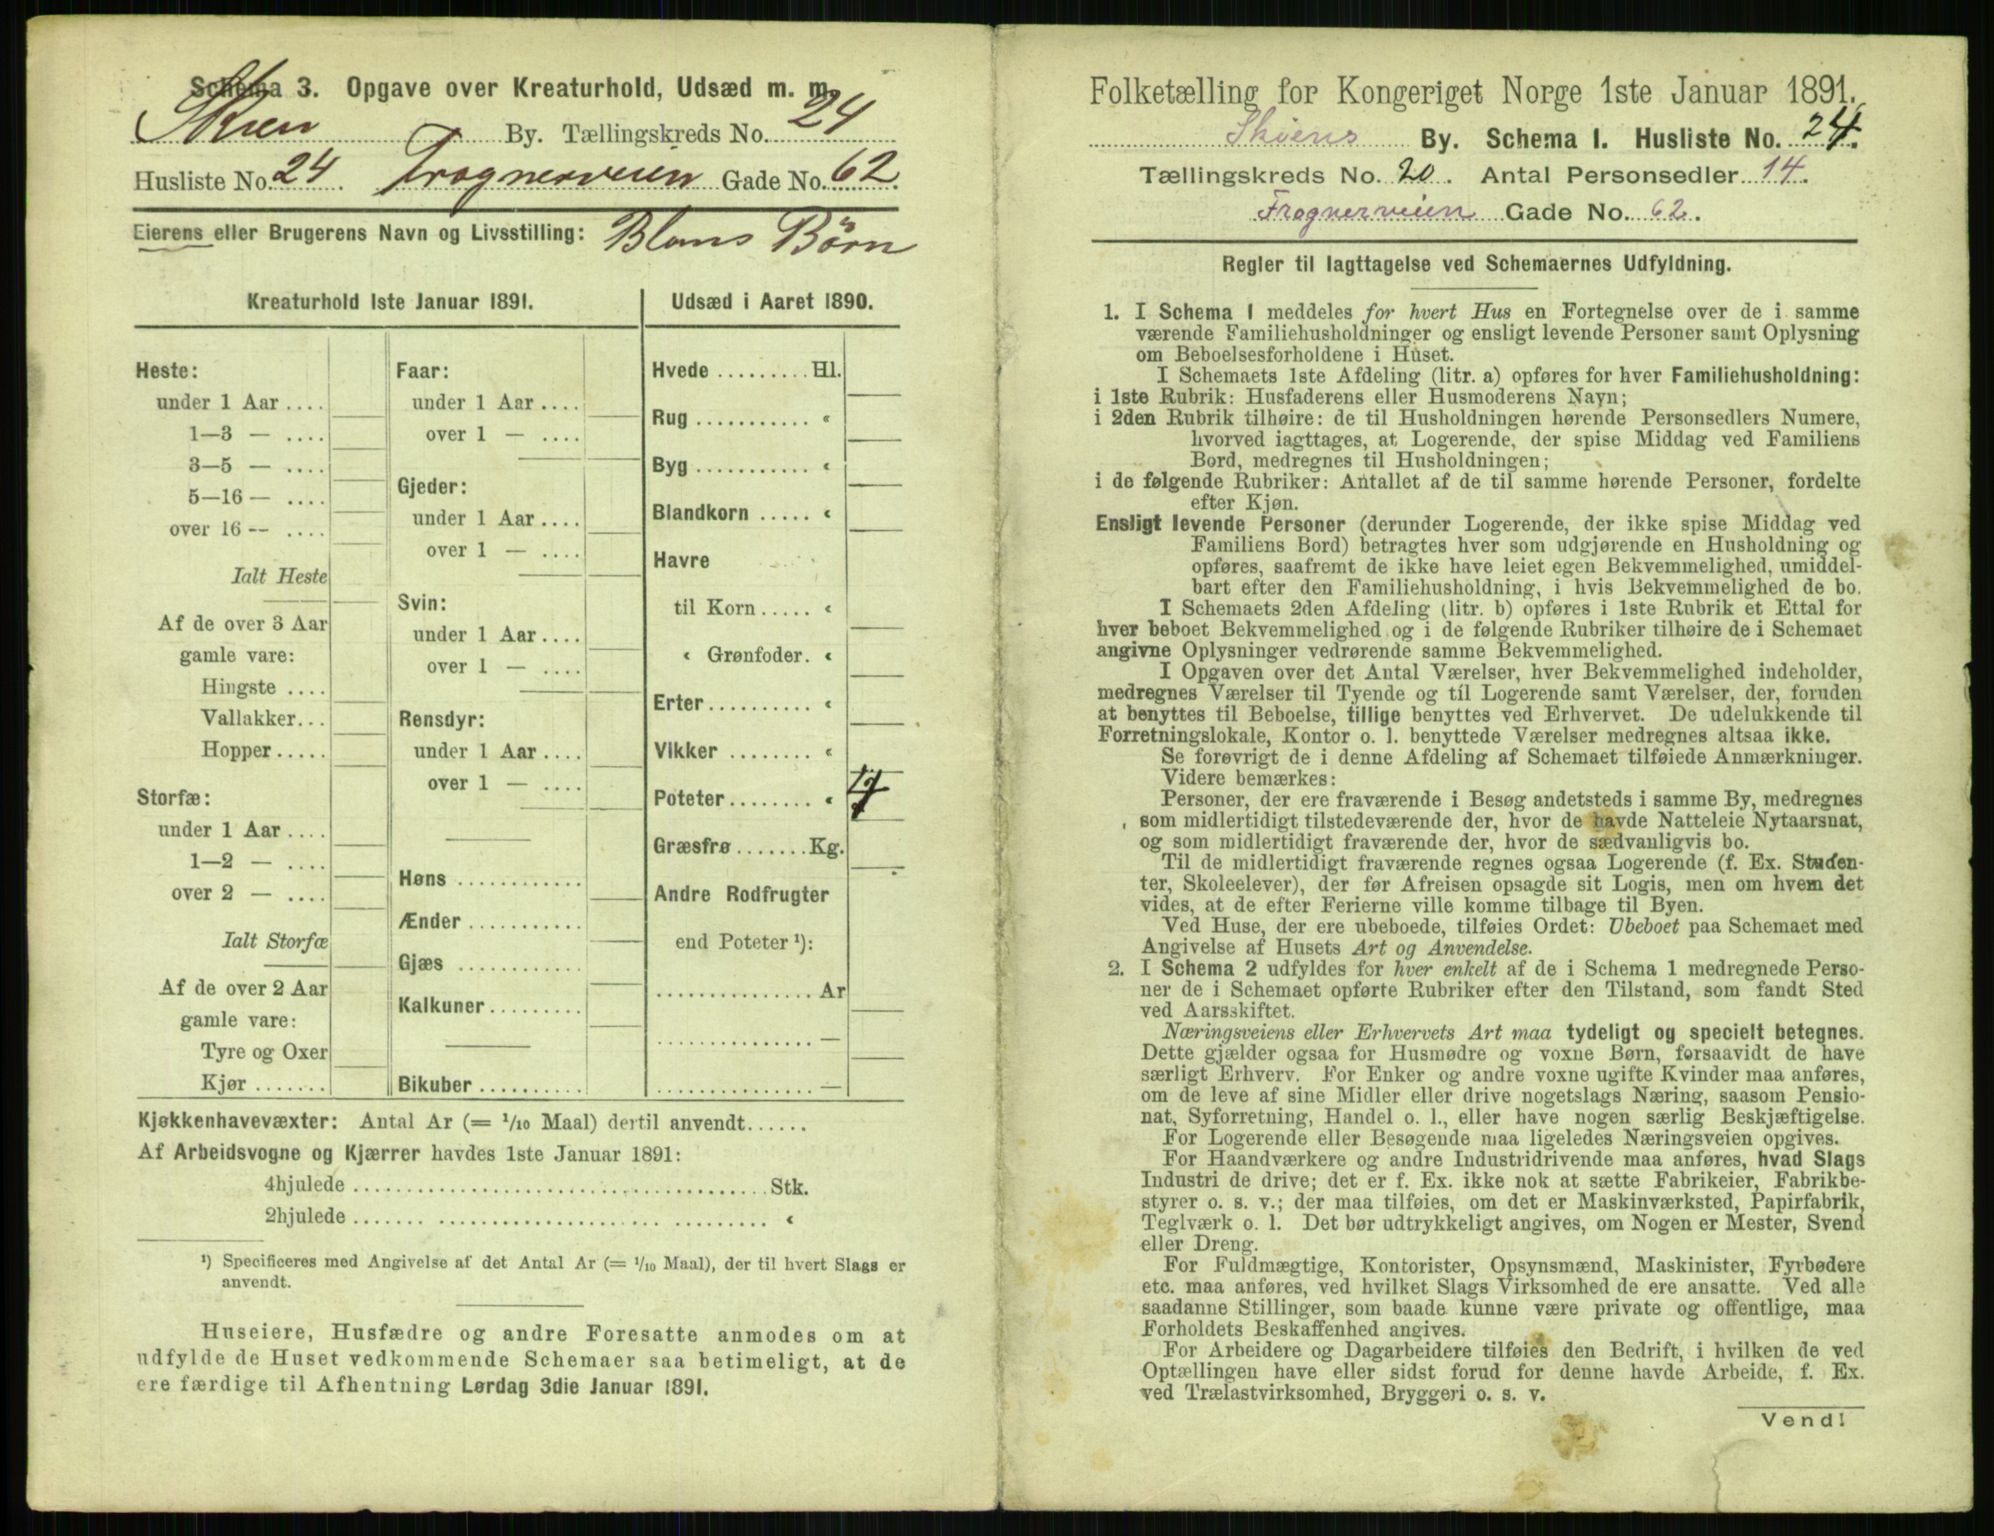 Schema 3. Opgave over Kreaturhold, Udsæd m. m.
Skien By. Tællingskreds No. 24
Husliste No. 24. Frognerveien Gade No. 62.
Eierens eller Brugerens Navn og Livsstilling: Børn
Kreaturhold 1ste Januar 1891.
Heste:
under 1 Aar ....
1—3 — ....
3—5 — ....
5—16 — ....
over 16 -- ....
Ialt Heste
Af de over 3 Aar
gamle vare:
Hingste ....
Vallakker...
Hopper.....
Storfæ:
under 1 Aar ....
1—2 — ....
over 2 — ....
Ialt Storfæ
Af de over 2 Aar
gamle vare:
Tyre og Oxer
Kjør .......
Faar:
under 1 Aar ....
over 1 — ....
Gjeder:
under 1 Aar ....
over 1 — ....
Svin:
under 1 Aar ....
over 1 — ....
Rensdyr:
under 1 Aar ....
over 1 — ....
Høns ............
Ænder ...........
Gjæs ............
Kalkuner.........
Bikuber ..........
Udsæd i Aaret 1890.
Hvede ......... Hl.
Rug ........... «
Byg ........... «
Blandkorn ..... «
Havre
til Korn ..... «
« Grønfoder. «
Erter.......... «
Vikker ........ «
Poteter........ «
Græsfrø ....... Kg.
Andre Rodfrugter
end Poteter ¹):
............... Ar
............... —
............... —
Kjøkkenhavevæxter: Antal Ar (= ¹/10 Maal) dertil anvendt......
Af Arbeidsvogne og Kjærrer havdes 1ste Januar 1891:
4hjulede ....................................... Stk.
2hjulede ....................................... «
¹) Specificeres med Angivelse af det Antal Ar (= ¹/10 Maal), der til hvert Slags er
anvendt.
Huseiere, Husfædre og andre Foresatte anmodes om at
udfylde de Huset vedkommende Schemaer saa betimeligt, at de
ere færdige til Afhentning Lørdag 3die Januar 1891.
Folketælling for Kongeriget Norge 1ste Januar 1891.
Skiens By. Schema I. Husliste No. 24.
Tællingskreds No. 20. Antal Personsedler 14.
Frognerveien Gade No. 62.
Regler til Iagttagelse ved Schemaernes Udfyldning.
1. I Schema I meddeles for hvert Hus en Fortegnelse over de i samme
værende Familiehusholdninger og ensligt levende Personer samt Oplysning
om Beboelsesforholdene i Huset.
I Schemaets 1ste Afdeling (litr. a) opføres for hver Familiehusholdning:
i 1ste Rubrik: Husfaderens eller Husmoderens Navn;
i 2den Rubrik tilhøire: de til Husholdningen hørende Personsedlers Numere,
hvorved iagttages, at Logerende, der spise Middag ved Familiens
Bord, medregnes til Husholdningen;
i de følgende Rubriker: Antallet af de til samme hørende Personer, fordelte
efter Kjøn.
Ensligt levende Personer (derunder Logerende, der ikke spise Middag ved
Familiens Bord) betragtes hver som udgjørende en Husholdning og
opføres, saafremt de ikke have leiet egen Bekvemmelighed, umiddel-
bart efter den Familiehusholdning, i hvis Bekvemmelighed de bo.
I Schemaets 2den Afdeling (litr. b) opføres i 1ste Rubrik et Ettal for
hver beboet Bekvemmelighed og i de følgende Rubriker tilhøire de i Schemaet
angivne Oplysninger vedrørende samme Bekvemmelighed.
I Opgaven over det Antal Værelser, hver Bekvemmelighed indeholder,
medregnes Værelser til Tyende og til Logerende samt Værelser, der, foruden
at benyttes til Beboelse, tillige benyttes ved Erhvervet. De udelukkende til
Forretningslokale, Kontor o. l. benyttede Værelser medregnes altsaa ikke.
Se forøvrigt de i denne Afdeling af Schemaet tilføiede Anmærkninger.
Videre bemærkes:
Personer, der ere fraværende i Besøg andetsteds i samme By, medregnes
som midlertidigt tilstedeværende der, hvor de havde Natteleie Nytaarsnat,
og som midlertidigt fraværende der, hvor de sædvanligvis bo.
Til de midlertidigt fraværende regnes ogsaa Logerende (f. Ex. Studen-
ter, Skoleelever), der før Afreisen opsagde sit Logis, men om hvem det
vides, at de efter Ferierne ville komme tilbage til Byen.
Ved Huse, der ere ubeboede, tilføies Ordet: Ubeboet paa Schemaet med
Angivelse af Husets Art og Anvendelse.
2. I Schema 2 udfyldes for hver enkelt af de i Schema 1 medregnede Perso-
ner de i Schemaet opførte Rubriker efter den Tilstand, som fandt Sted
ved Aarsskiftet.
Næringsveiens eller Erhvervets Art maa tydeligt og specielt betegnes.
Dette gjælder ogsaa for Husmødre og voxne Børn, forsaavidt de have
særligt Erhverv. For Enker og andre voxne ugifte Kvinder maa anføres,
om de leve af sine Midler eller drive nogetslags Næring, saasom Pensio-
nat, Syforretning, Handel o. l., eller have nogen særlig Beskjæftigelse.
For Logerende eller Besøgende maa ligeledes Næringsveien opgives.
For Haandværkere og andre Industridrivende maa anføres, hvad Slags
Industri de drive; det er f. Ex. ikke nok at sætte Fabrikeier, Fabrikbe-
styrer o. s. v.; der maa tilføies, om det er Maskinværksted, Papirfabrik,
Teglværk o. l. Det bør udtrykkeligt angives, om Nogen er Mester, Svend
eller Dreng.
For Fuldmægtige, Kontorister, Opsynsmænd, Maskinister, Fyrbødere
etc. maa anføres, ved hvilket Slags Virksomhed de ere ansatte. Ved alle
saadanne Stillinger, som baade kunne være private og offentlige, maa
Forholdets Beskaffenhed angives.
For Arbeidere og Dagarbeidere tilføies den Bedrift, i hvilken de ved
Optællingen have eller sidst forud for denne havde Arbeide, f. Ex.
ved Trælastvirksomhed, Bryggeri o. s. v.
Vend!